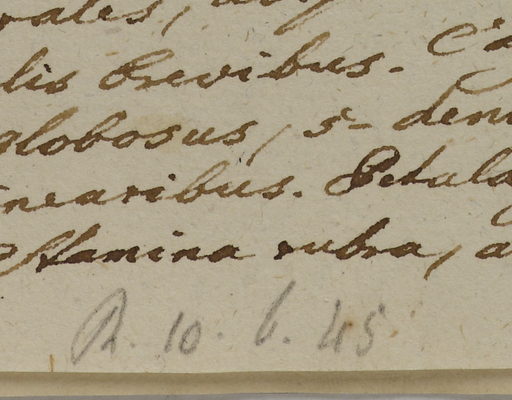 lis brevibus. Ca
globosus, 5-den
nearibus. Petala
Stamina rubra, a
R. 10. b. 45